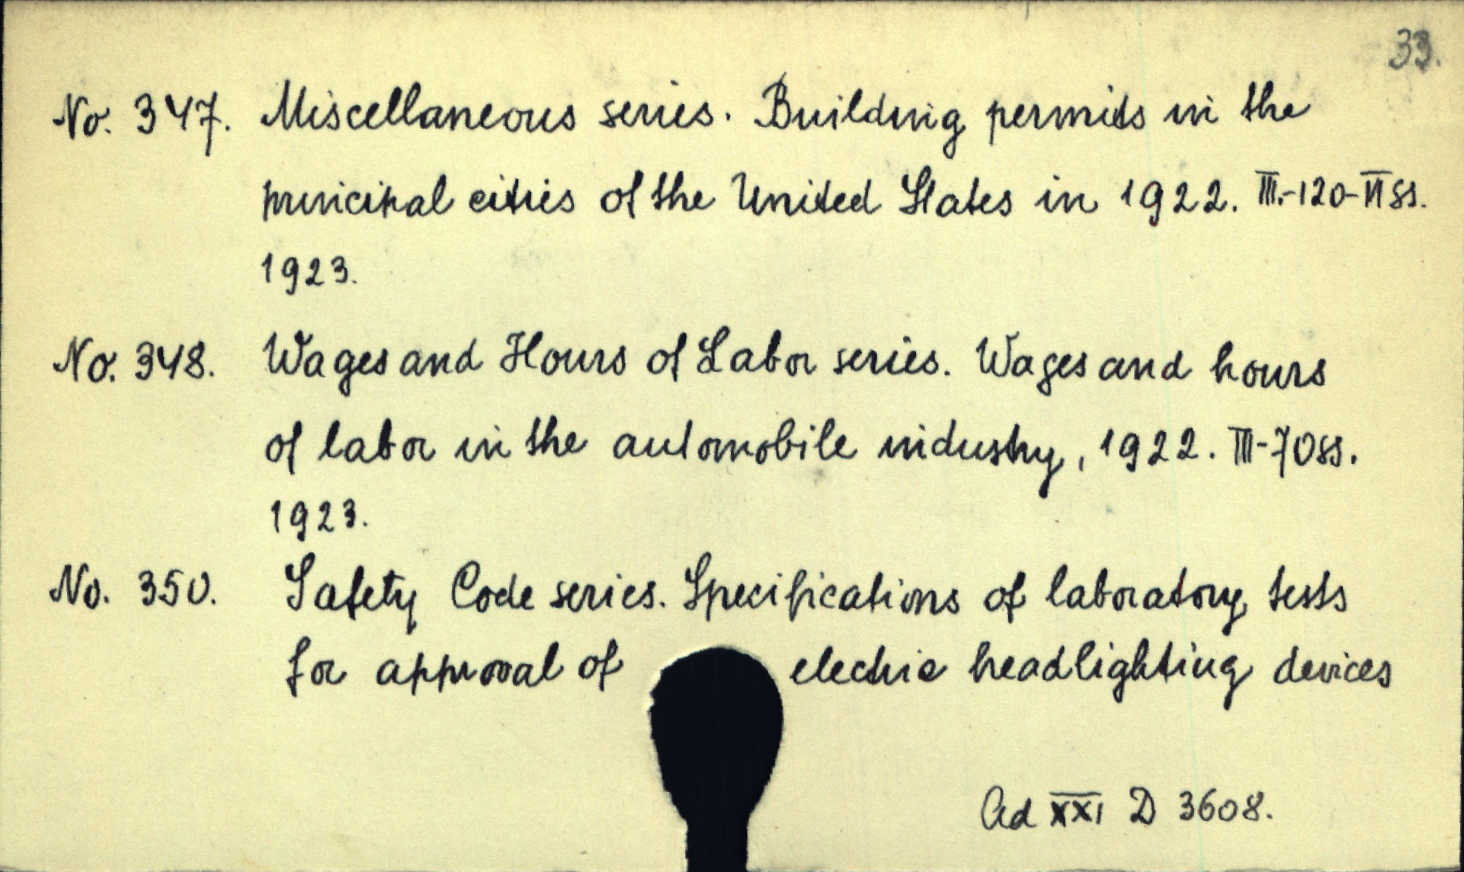 33.
No. 347. Miscellaneous series. Building permits in the
principal cities of the United States in 1922. III.-120-VI ss.
1923.
No. 348. Wages and Hours of Labor series. Wages and hours
of labor in the automobile industry, 1922. III-70 ss.
1923.
No. 350. Safety Code series. Specifications of laboratory tests
for approval of electric headlighting devices
Ad XXI D 3608.